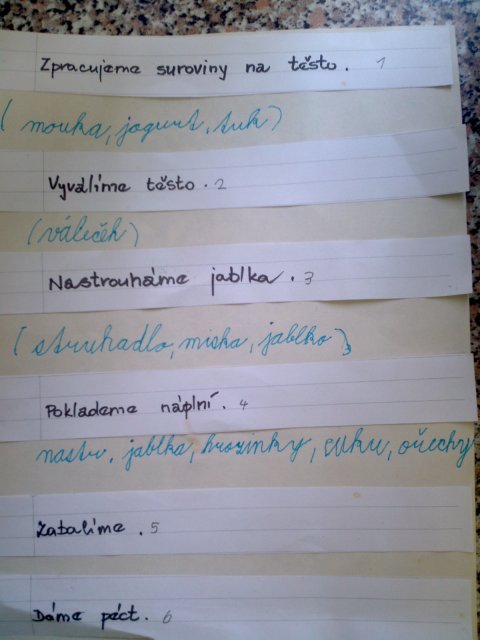 Zpracujeme suroviny na těsto. 1
(mouka, jogurt, tuk)
Vyválíme těsto. 2
(váliček)
Nastrouháme jablka. 3
(struhadlo, miska, jablko)
Poklademe náplní. 4
nastr. jablka, hrozinky, cukr, ořechy
Zabalíme. 5
Dáme péct. 6